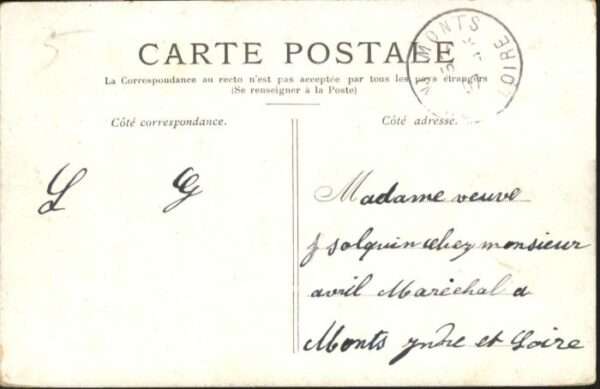 5
CARTE POSTALE
La Correspondance au recto n'est pas acceptée par tous les pays étrangers
(Se renseigner à la Poste)
Côté correspondance.
Côté adresse.
MONTS
LOIRE
L G
Madame veuve
chez monsieur
avril Maréchal a
Monts yndre et Loire